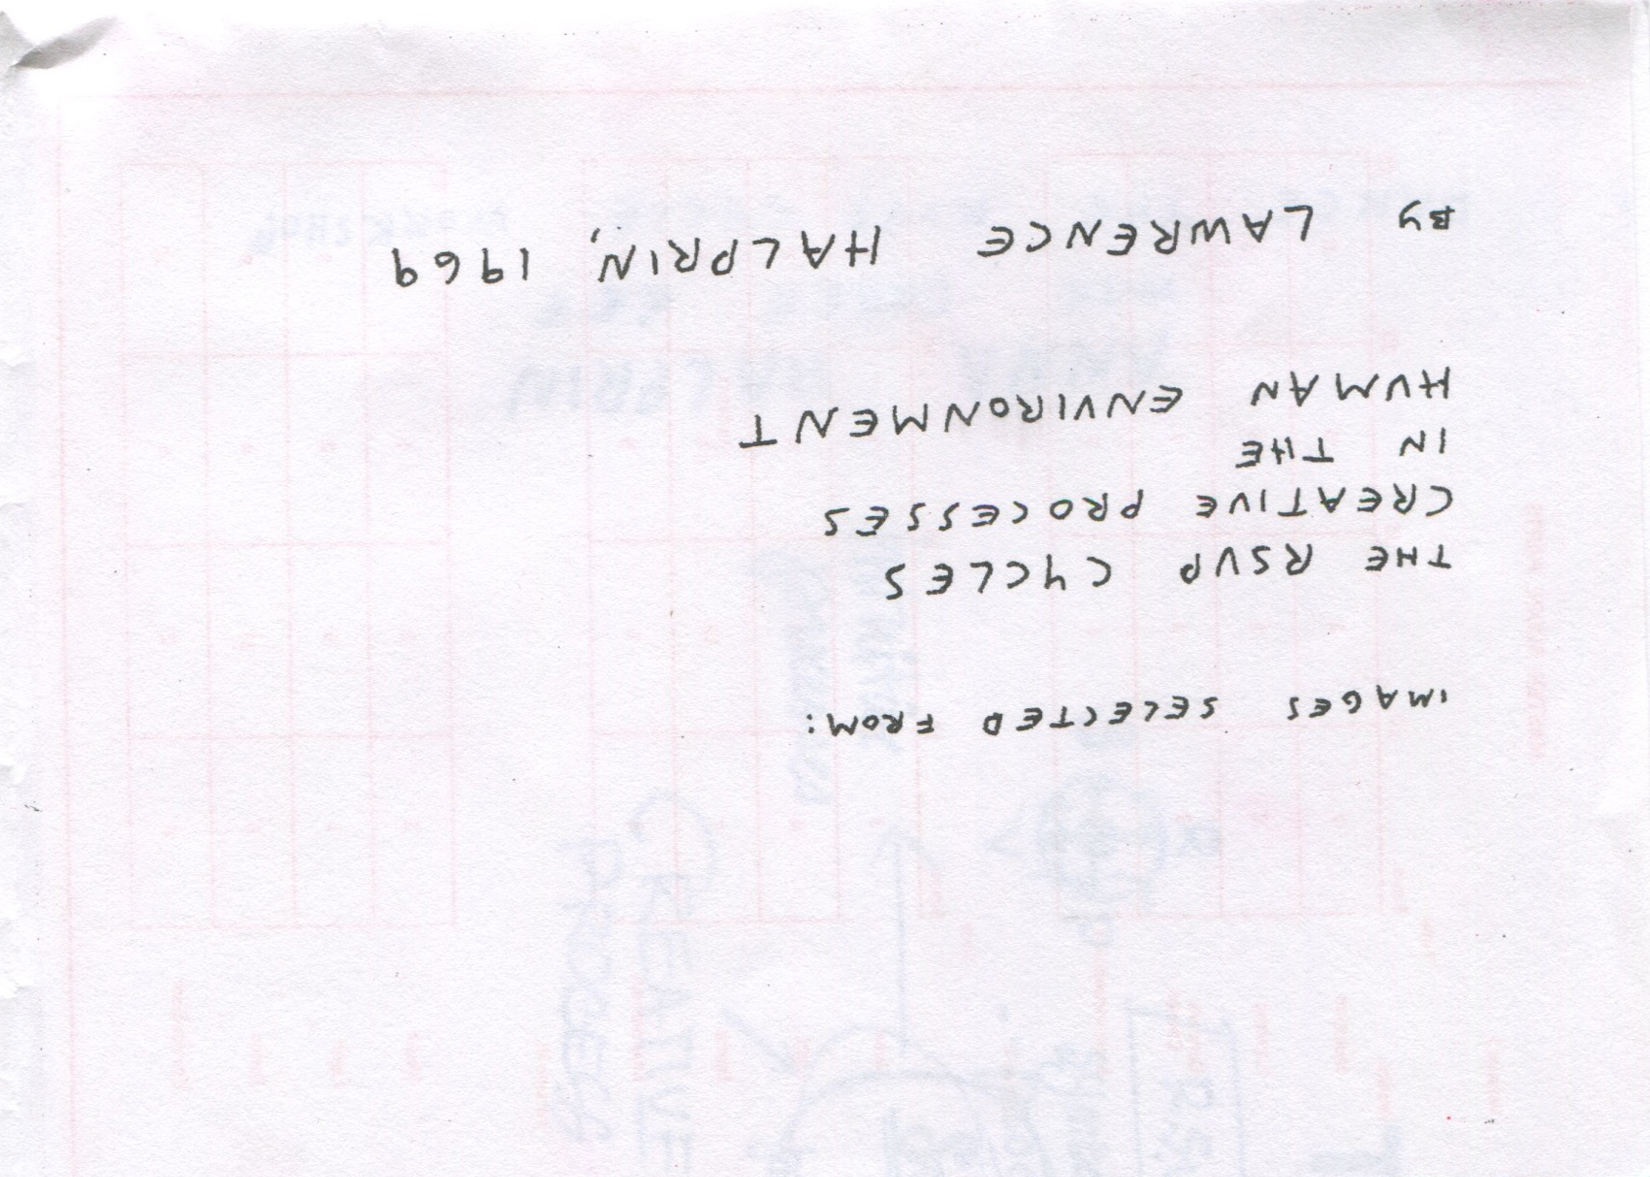 IMAGES SELECTED FROM:
THE RSVP CYCLES
CREATIVE PROCESSES
IN THE
HUMAN ENVIRONMENT
BY LAWRENCE HALPRIN, 1969
CREATIVE
PROCESS